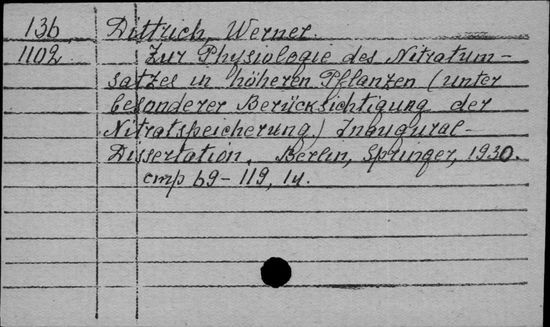 136 Dittrich, Werner.
1102 Zur Physiologie des Nitratum-
satzes in höheren Pflanzen (unter
besonderer Berücksichtigung der
Nitratspeicherung) Inaugural-
Dissertation, Berlin, Springer, 1930.
стр 69-119, 1 и.